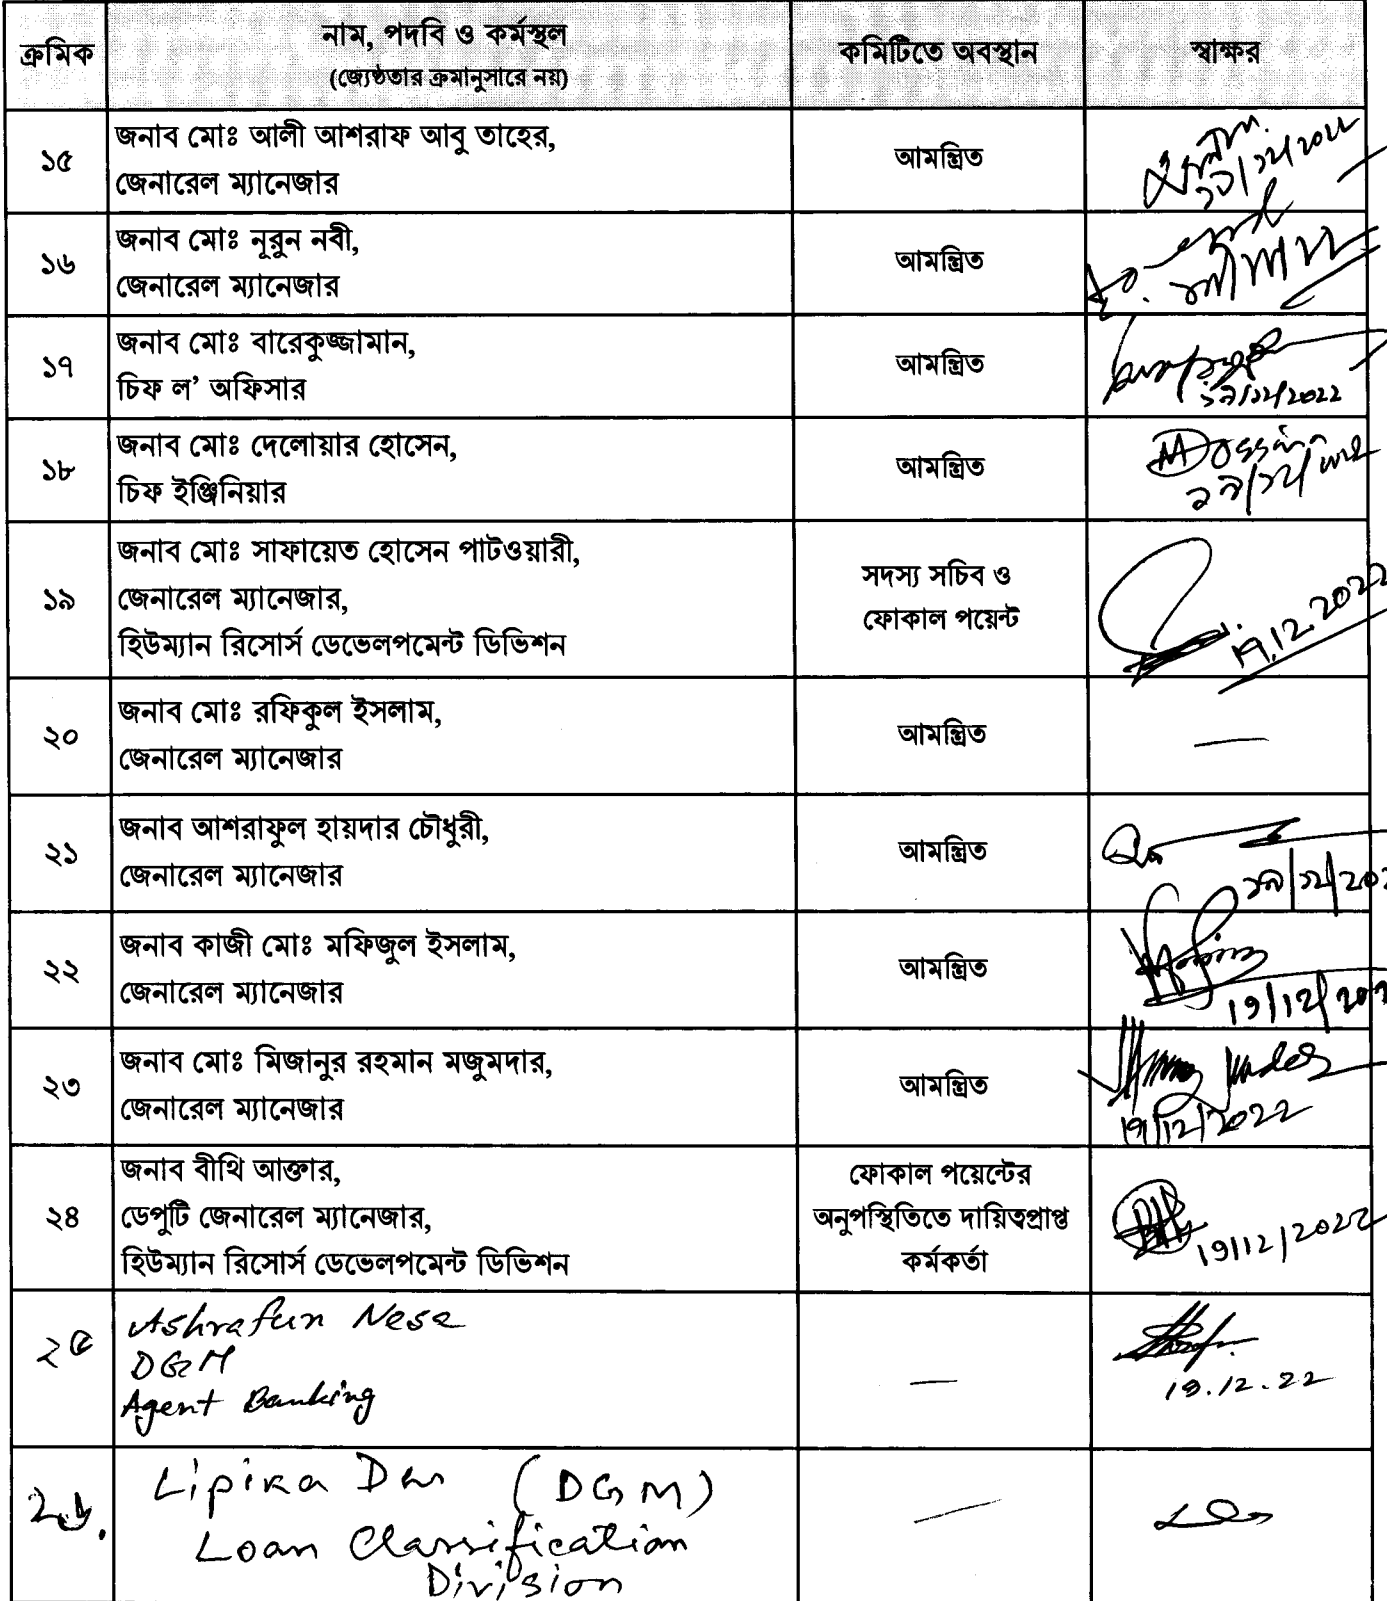 ক্রমিক
নাম, পদবি ও কর্মস্থল
(জ্যেষ্ঠতার ক্রমানুসারে নয়)
কমিটিতে অবস্থান
স্বাক্ষর
১৫
জনাব মোঃ আলী আশরাফ আবু তাহের,
জেনারেল ম্যানেজার
আমন্ত্রিত
১৬
জনাব মোঃ নূরুন নবী,
জেনারেল ম্যানেজার
আমন্ত্রিত
১৭
জনাব মোঃ বারেকুজ্জামান,
চিফ ল’ অফিসার
আমন্ত্রিত
১৯/১২/২০২২
১৮
জনাব মোঃ দেলোয়ার হোসেন,
চিফ ইঞ্জিনিয়ার
আমন্ত্রিত
১৯
জনাব মোঃ সাফায়েত হোসেন পাটওয়ারী,
জেনারেল ম্যানেজার,
হিউম্যান রিসোর্স ডেভেলপমেন্ট ডিভিশন
সদস্য সচিব ও
ফোকাল পয়েন্ট
19.12.2022
২০
জনাব মোঃ রফিকুল ইসলাম,
জেনারেল ম্যানেজার
আমন্ত্রিত
—
২১
জনাব আশরাফুল হায়দার চৌধুরী,
জেনারেল ম্যানেজার
আমন্ত্রিত
২২
জনাব কাজী মোঃ মফিজুল ইসলাম,
জেনারেল ম্যানেজার
আমন্ত্রিত
২৩
জনাব মোঃ মিজানুর রহমান মজুমদার,
জেনারেল ম্যানেজার
আমন্ত্রিত
19/12/2022
২৪
জনাব বীথি আক্তার,
ডেপুটি জেনারেল ম্যানেজার,
হিউম্যান রিসোর্স ডেভেলপমেন্ট ডিভিশন
ফোকাল পয়েন্টের
অনুপস্থিতিতে দায়িত্বপ্রাপ্ত
কর্মকর্তা
19/12/2022
২৫
Ashrafun Nesa
DGM
Agent Banking
—
19.12.22
২৬.
Lipika Das (DGM)
Loan Classification
Division
—